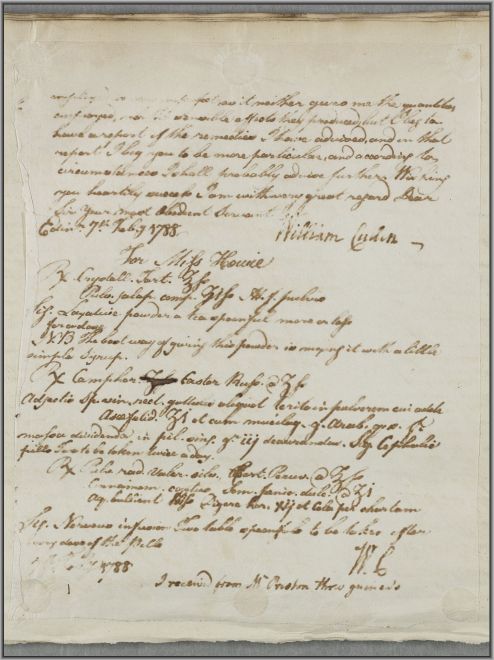 as it neither gives me the quantities
nor the effects they produced, but I beg to
have a report of the remedies I have advised, and in that
report I beg you to be more particular, and according to
circumstances I shall probably advise further. Wishing
you heartily success I am with very great regard Dear
Sir Your most Obedient Servant
Edinr. 7th Feby 1788 William Cullen
For Miss Howie
Rx Crystall. Tart. ʒſs
Pulv. Jalap. comp. ʒiſs M. f. pulvis
Sig. Laxative powder a tea spoonful more or less
for a dose
NB The best way of giving this powder is mixing it with a little
simple Syrup.
Rx Camphor. Castor Russ. @ ʒſs
Adjectis Sp. vin. rect. guttis aliquot terito in pulverem cui adde
Asafoetid. ʒi et cum mucilag. g. Arab. q. s. ft.
massa dividenda in pil. sing. gr. iij deaurandas. Sig. Cephalic
pills Two to be taken twice a day.
Rx Pulv. rad. Valer. silv. Cort. Peruv. @ ʒſs
Sem. foenic. dulc. @ ʒi
Aq. bullient. lbſs Digere hor. xij et cola per chartam
Sig. Nervous infusion Two table spoonfuls to be taken after
every dose of the Pills
1788 W. C
I received from Mr three guineas